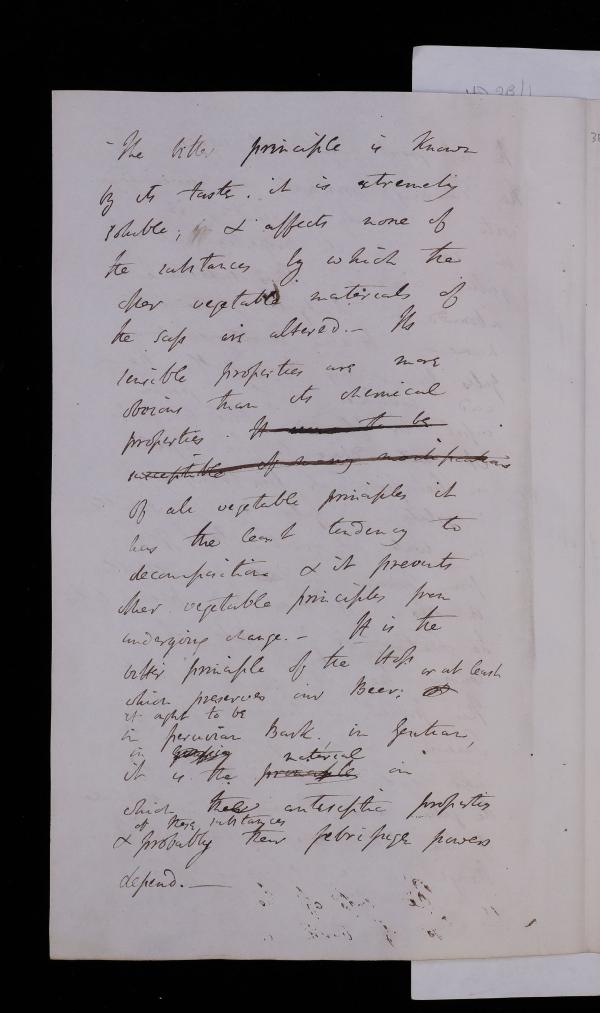 The bitter principle is known
by its taste. it is extremely
soluble; & affects none of
the substances by which the
other vegetable materials of
the sap are altered. - Its
sensible properties are more
obvious than its chemical
properties. It seems to be
susceptible of many modifications
Of all vegetable principles it
has the least tendency to
decomposition & it prevents
other vegetable principles from
undergoing change. - It is the
bitter principle of the Hop or at least
which preserves our Beer;
it ought to be
in peruvian Bark. in Gentian,
in material
it is the principle in
which their antiseptic properties
of these substances
& probably their febrifuge powers
depend. -